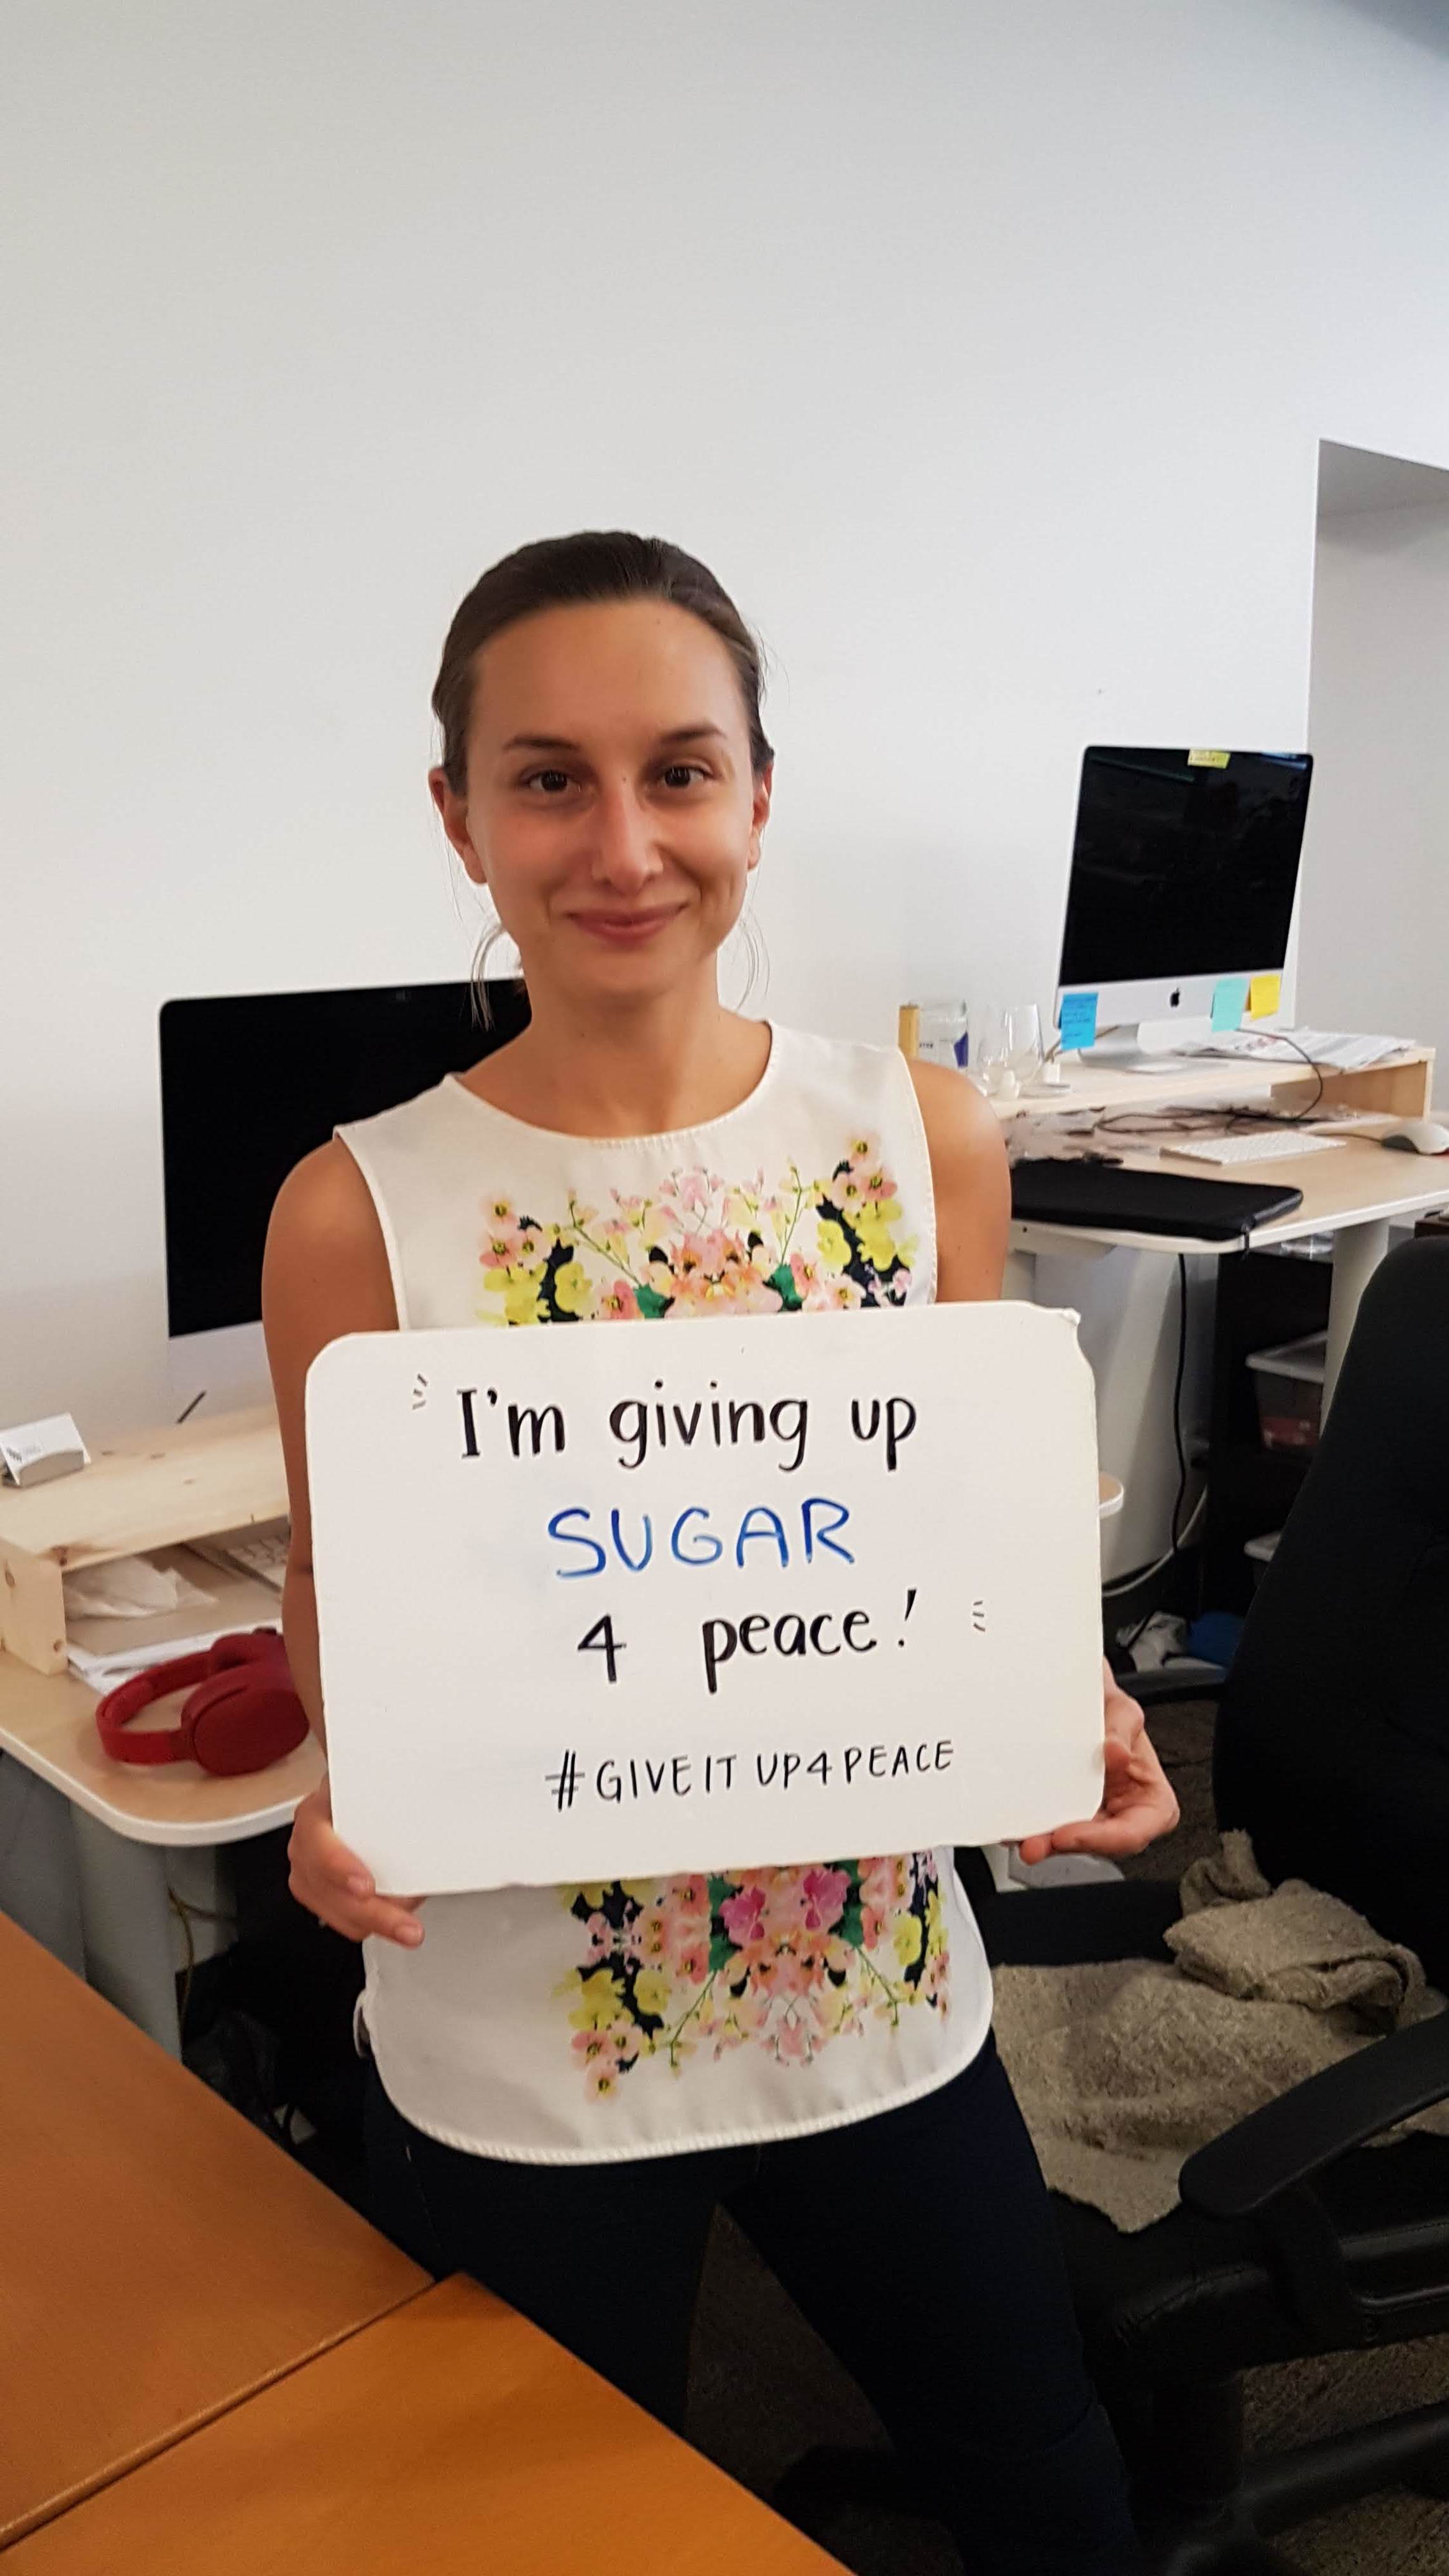 I'm giving up
SUGAR
4 peace!
#GIVEITUP4PEACE